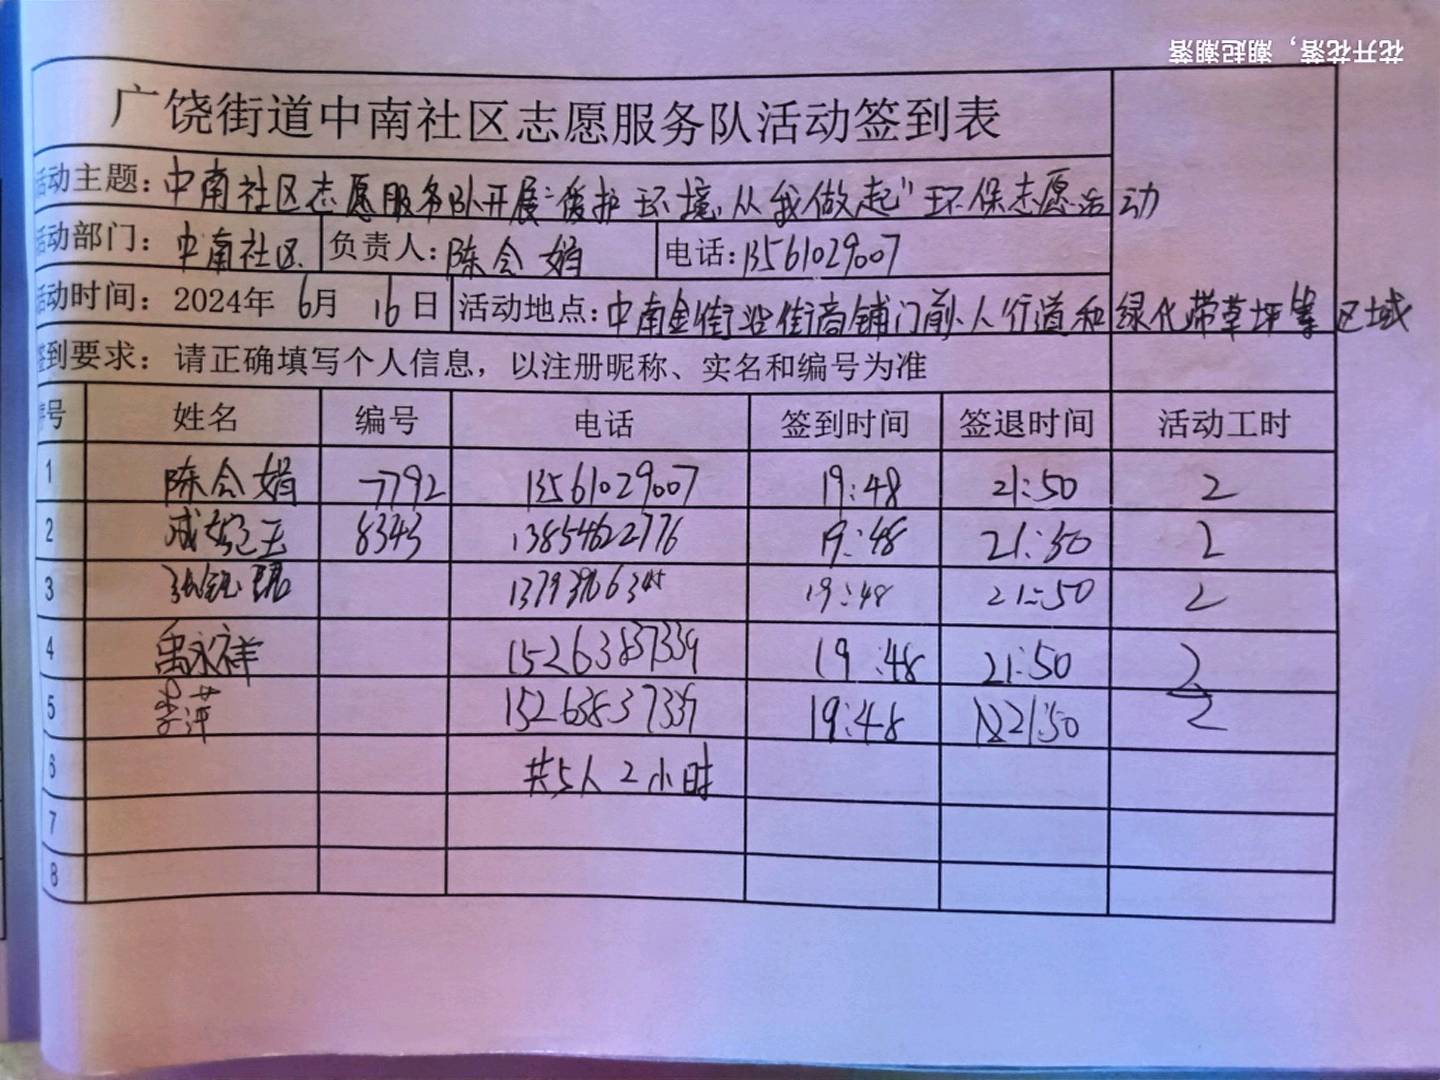 花开花落，潮起潮落
广饶街道中南社区志愿服务队活动签到表
活动主题：中南社区志愿服务队开展“爱护环境，从我做起”环保志愿活动
活动部门：中南社区 负责人：陈会娟 电话：13561029007
活动时间：2024年6月16日 活动地点：中南金街沿街商铺门前、人行道和绿化带草坪等区域
签到要求：请正确填写个人信息，以注册昵称、实名和编号为准
序号 姓名 编号 电话 签到时间 签退时间 活动工时
1 陈会娟 7792 13561029007 19:48 21:50 2
2 8343 13854622776 19:48 21:50 2
3 19:48 21:50 2
4 禹永祥 15263837339 19:48 21:50 2
5 李萍 15263837339 19:48 21:50 2
6 共5人2小时
7
8